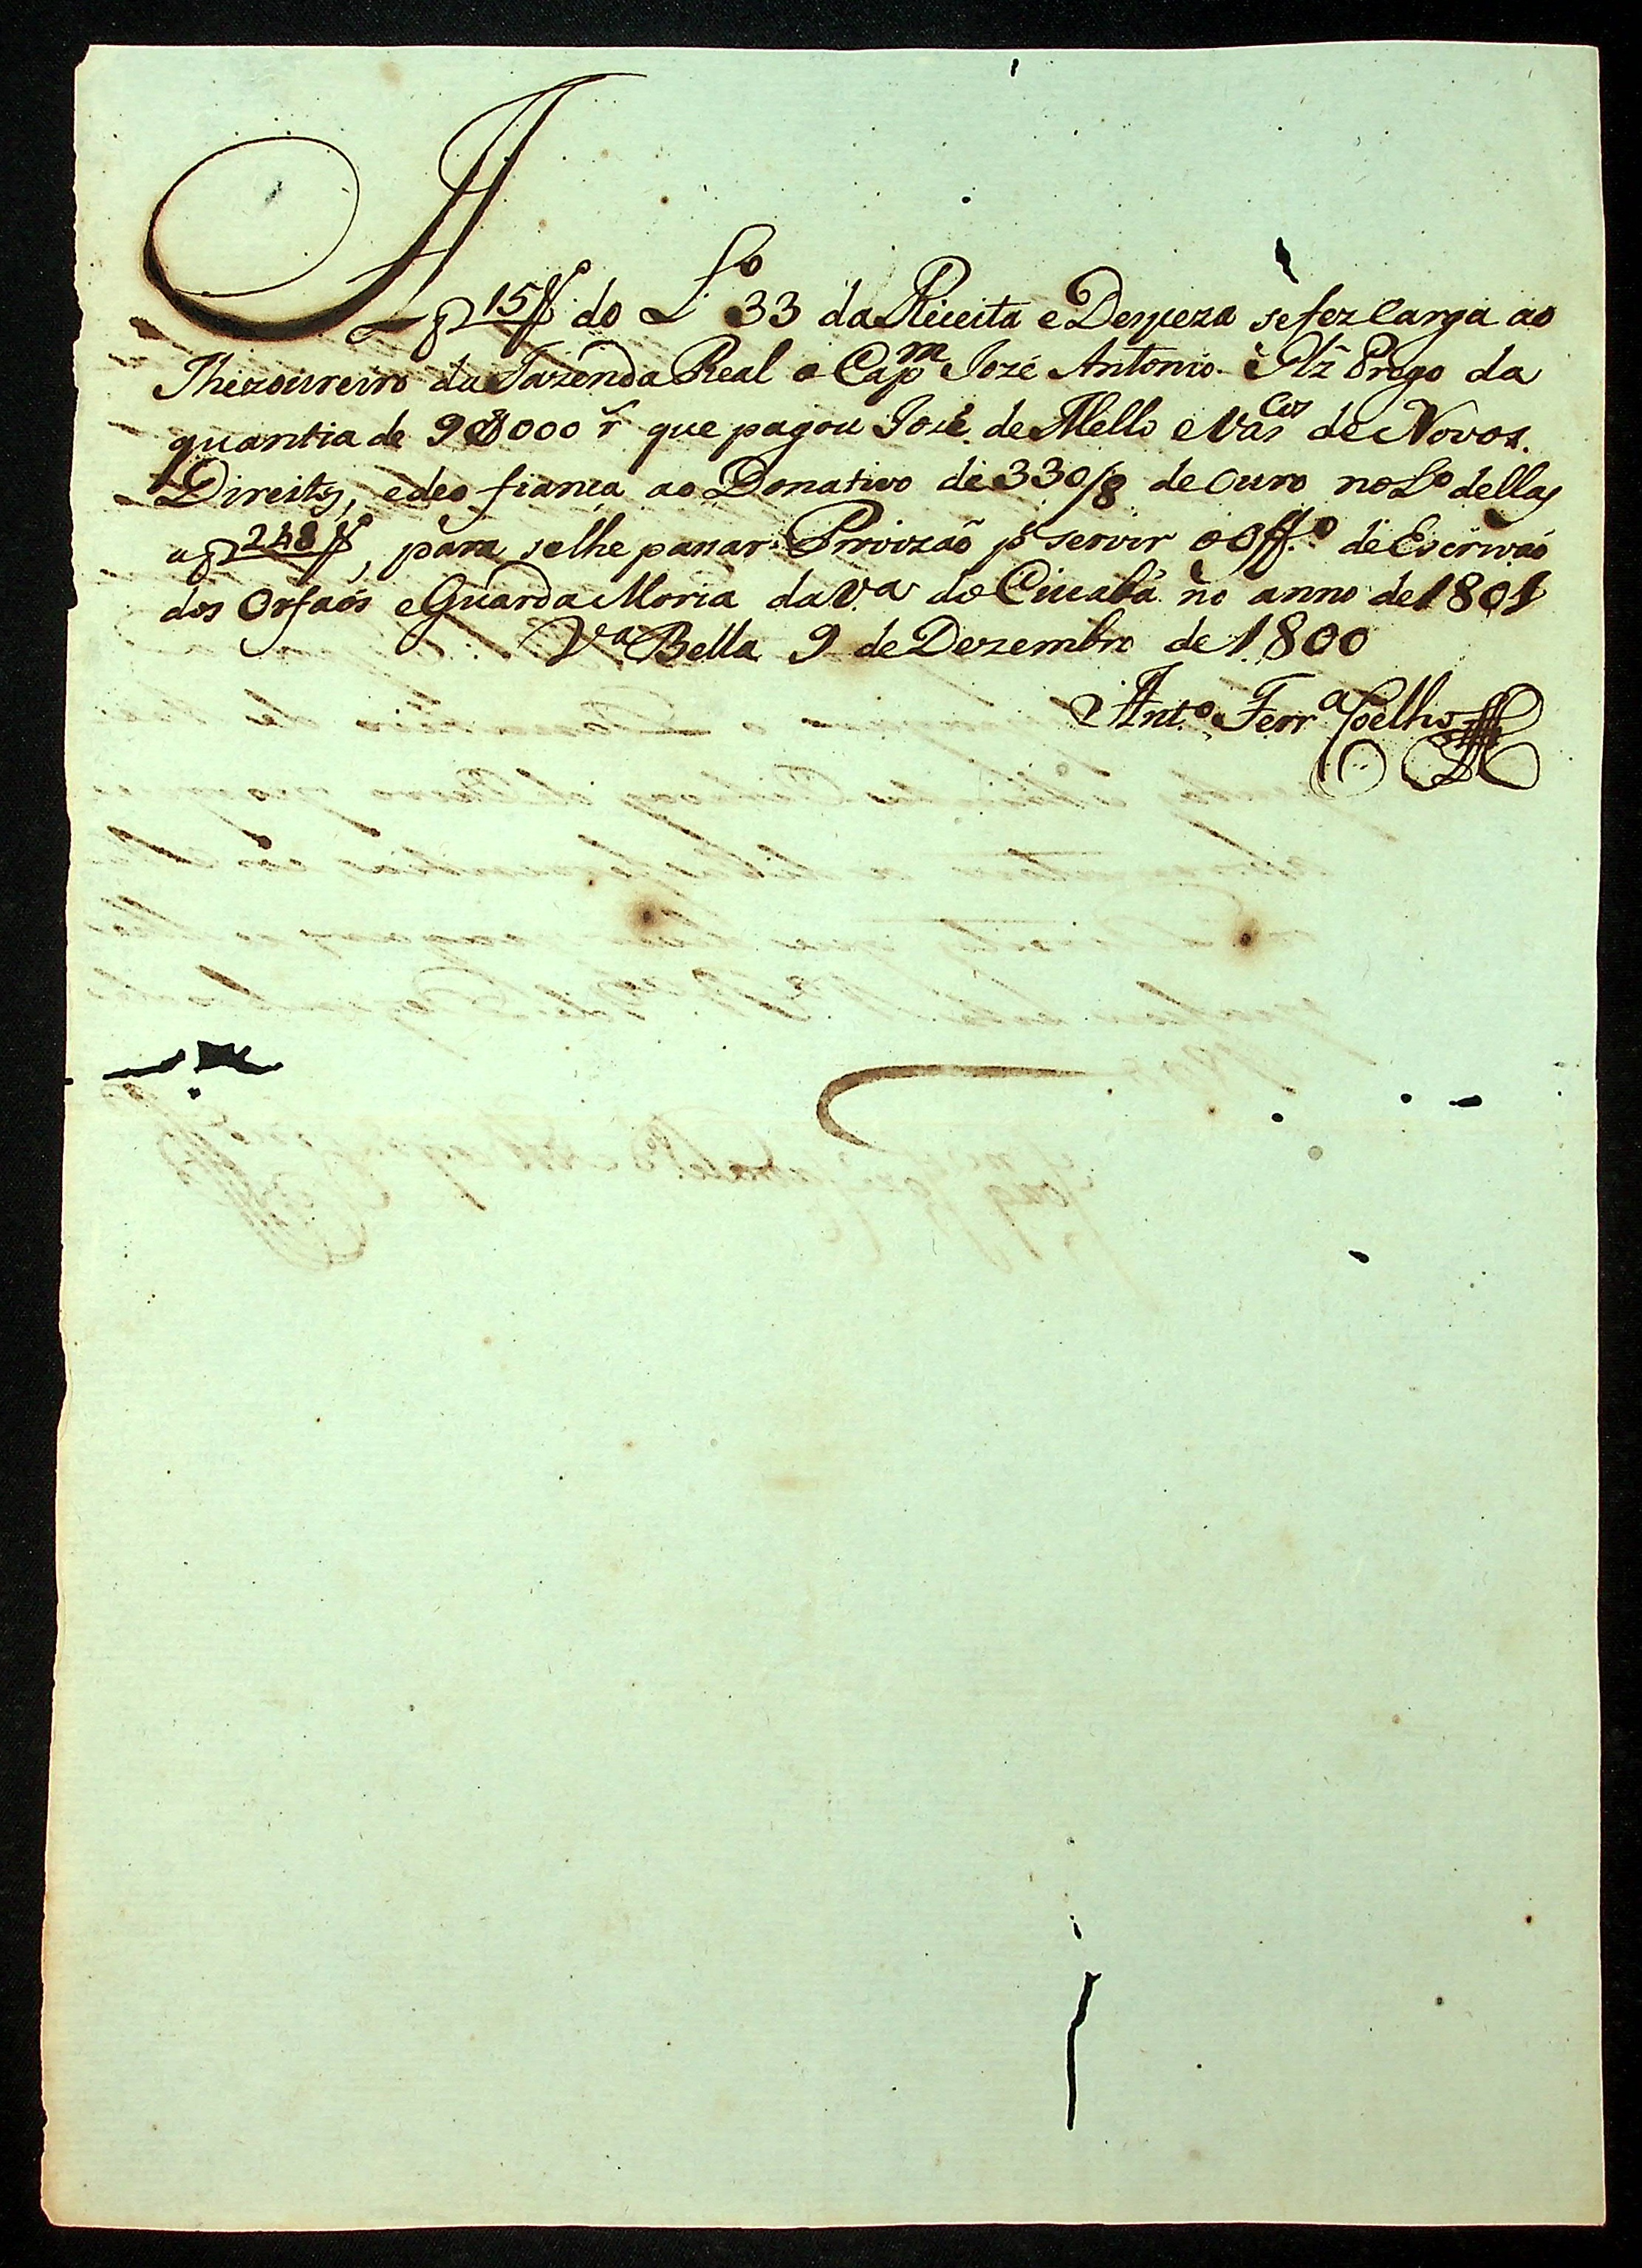 A f 15 V do Lº 33 da Receita e Despeza se fez Carga ao
Thezoureiro da Fazenda Real o Capm Jozé Antonio Glz Prego da
quantia de 98000 r que pagou Jozé de Mello e Vasces de Novos
Direitos, e deo fiança ao Donativo de 330/8 de Ouro no Lº dellas
a f 248 V, para se lhe passar Provizão pª servir o Offº de Escrivaõ
dos Orfaõs e Guarda Moria da Vª do Cuiabá no anno de 1801
Vª Bella 9 de Dezembro de 1800
Antº Ferrª Coelho